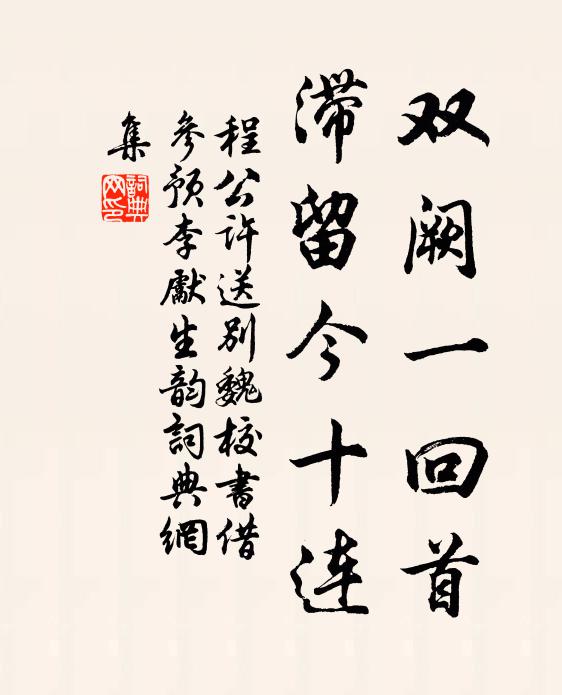 双阙一回首
滞留今十连
程公许送别魏校书借
参预李獻生韵詞典網
集
詞典网印